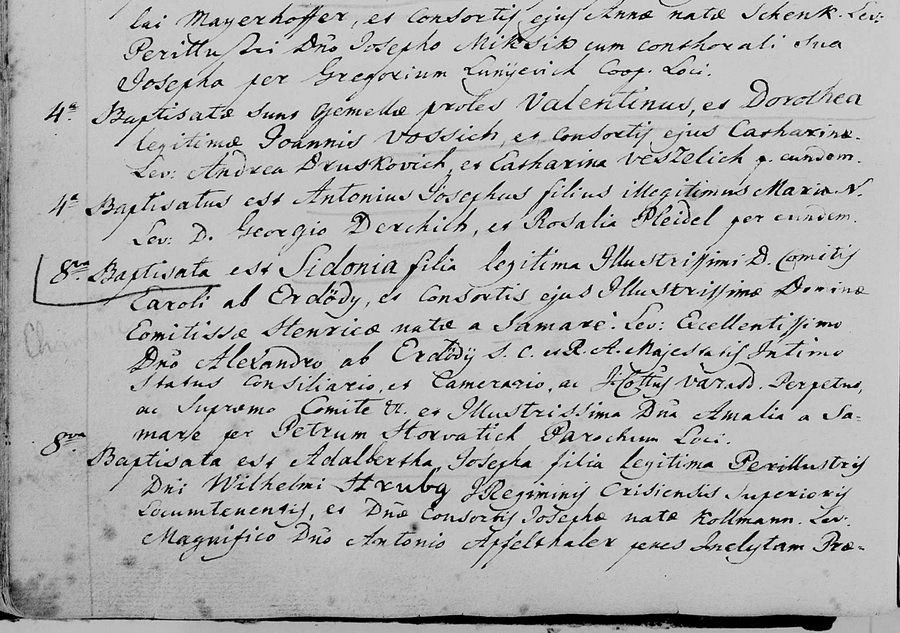 lai Mayerhoffer, et Consortis ejus Annæ natæ Schenk. Lev:
Perillustri Dno Josepho Miksik cum conthorali sua
Josepha per Gregorium Lunyevich Coop. Loci.
4ª Baptisatæ sunt gemellæ proles Valentinus, et Dorothea
legitimæ Joannis Vossich, et Consortis ejus Catharinæ.
Lev: Andrea Druskovich et Catharina Veszelich p. eundem.
4ª Baptisatus est Antonius Josephus filius illegitimus Maria N.
Lev: D. Georgio Derchich, et Rosalia Pleidel per eundem.
8va Baptisata est Sidonia filia legitima Illustrissimi D. Comitis
Caroli ab Erdödy, et Consortis ejus Illustrissimæ Dominæ
Comitissæ Henricæ natæ a Samare. Lev: Excellentissimo
Dno Alexandro ab Erdödy S. C. et R. A. Majestatis Intimo
Status Consiliario, et Camerario, ac I. Cottus Varasd. Perpetuo,
ac Supremo Comite &. et Illustrissima Dna Amalia a Sa-
mare per Petrum Horvatich Parochum Loci.
8va Baptisata est Adalbertha Josepha filia legitima Perillustris
Dni Wilhelmi Hruby Regiminis Crisiensis Superioris
Locumtenentis, et Dnæ Consortis Josephæ natæ Kollmann. Lev.
Magnifico Dno Antonio Apfelthaler penes Inclytam Præ-